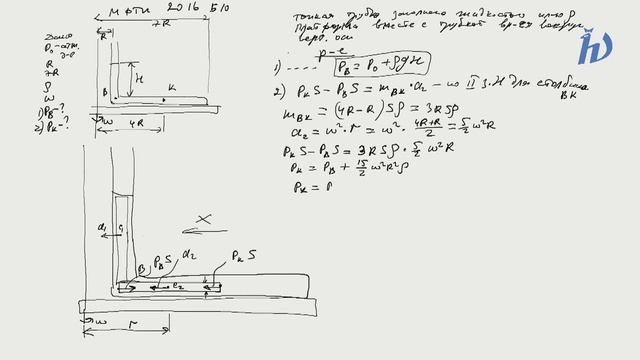 МФТИ 2016 Б/10
7R
R
Дано
P₀-атм.
g-e
R
7R
ρ
ω
1) P_B-?
2) P_K-?
H
B
K
ω
4R
тонкая трубка заполнена жидкостью плот ρ
платформа вместе с трубкой вр-ся вокруг
верт. оси
р-е
1) ..... P_B = P₀ + ρgH
2) P_K S - P_B S = m_BK · a₂ - по II з.Н для столбика
BK
m_BK = (4R-R)Sρ = 3RSρ
a₂ = ω²·r = ω² · (4R+R)/2 = 5/2 ω²R
P_K S - P_B S = 3RSρ · 5/2 ω²R
P_K = P_B + 15/2 ω²R²ρ
P_K = P
X
a₁
c₁
B
P_B S
a₂
P_K S
c₂
ω
r